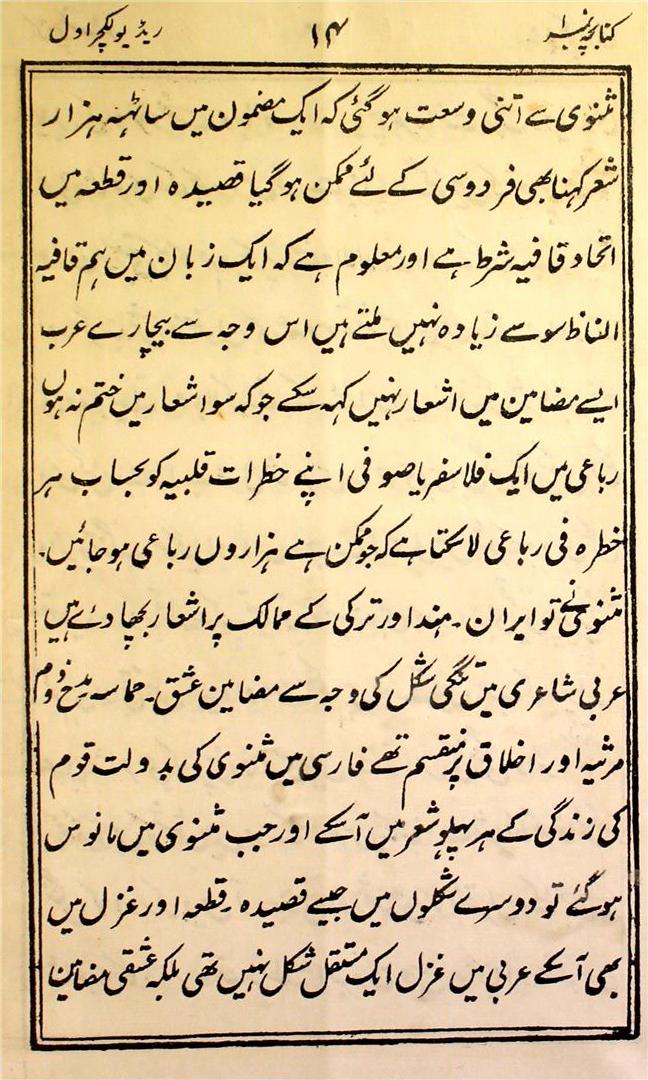 کتابچہ نمبر ۱
۱۴
ریڈیو لکچر اول
مثنوی سے اتنی وسعت ہوگئی کہ ایک مضمون میں ساٹہہ ہزار
شعر کہنا بھی فردوسی کے لئے ممکن ہو گیا قصیدہ اور قطعہ میں
اتحاد قافیہ شرط ہے اور معلوم ہے کہ ایک زبان میں ہم قافیہ
الفاظ سو سے زیادہ نہیں ملتے ہیں اس وجہ سے بیچارے عرب
ایسے مضامین میں اشعار نہیں کہہ سکے جو کہ سو اشعار میں ختم نہ ہوں
رباعی میں ایک فلاسفر یا صوفی اپنے خطرات قلبیہ کو بحساب ہر
خطرہ فی رباعی لا سکتا ہے کہ جو ممکن ہے ہزاروں رباعی ہو جائیں۔
مثنوی نے تو ایران۔ ہند اور ترکی کے ممالک پر اشعار بچھا دئے ہیں
عربی شاعری میں تنگی شکل کی وجہ سے مضامین عشق۔ حماسہ مدح و ذم
مرثیہ اور اخلاق پر منقسم تھے فارسی میں مثنوی کی بدولت قوم
کی زندگی کے ہر پہلو شعر میں آسکے اور جب مثنوی میں مانوس
ہوگئے تو دوسرے شکلوں میں جیسے قصیدہ۔ قطعہ اور غزل میں
بھی آسکے عربی میں غزل ایک مستقل شکل نہیں تھی بلکہ عشقی مضامین